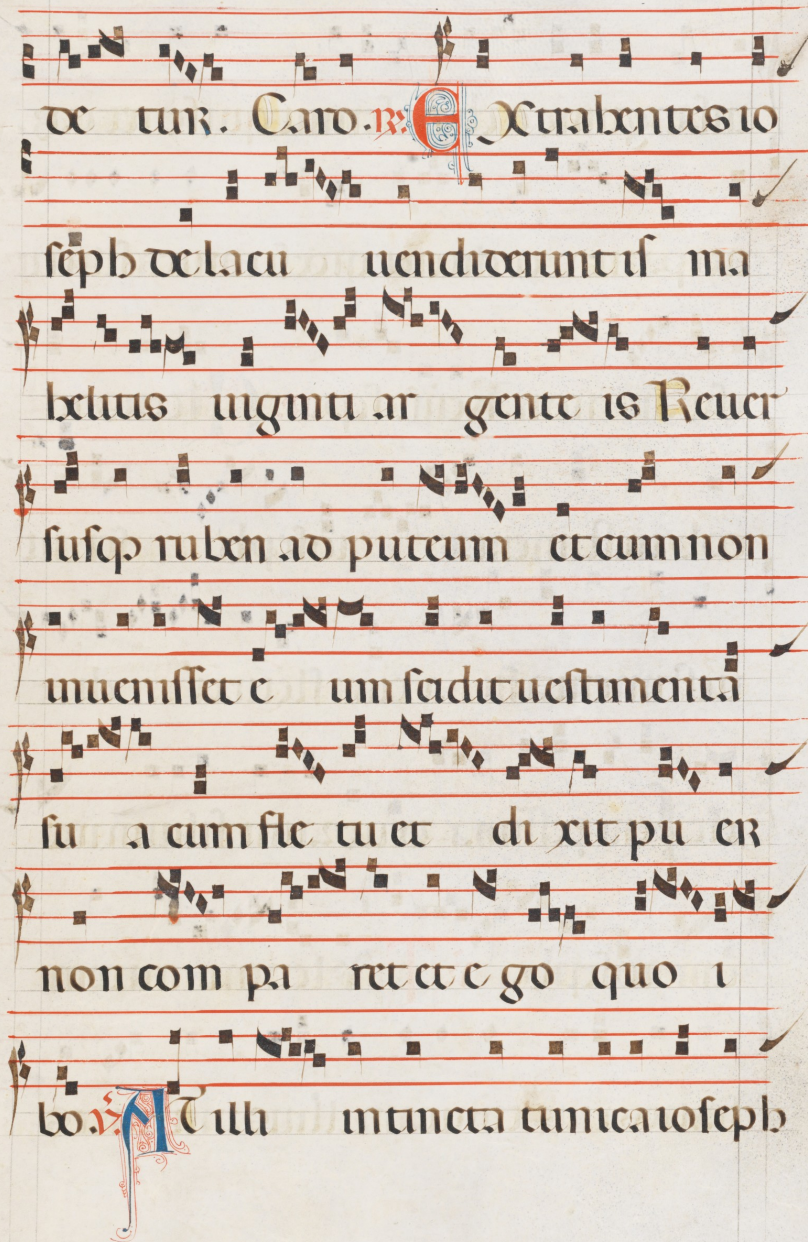 de tur. Caro. ℟. Extrahentes io
seph de lacu uendiderunt is ma
helitis uiginti ar gente is Reuer
susq; ruben ad puteum et cum non
inuenisset e um scidit uestimenta
su a cum fle tu et di xit pu er
non com pa ret et e go quo i
bo. ℣. At illi intincta tunica ioseph